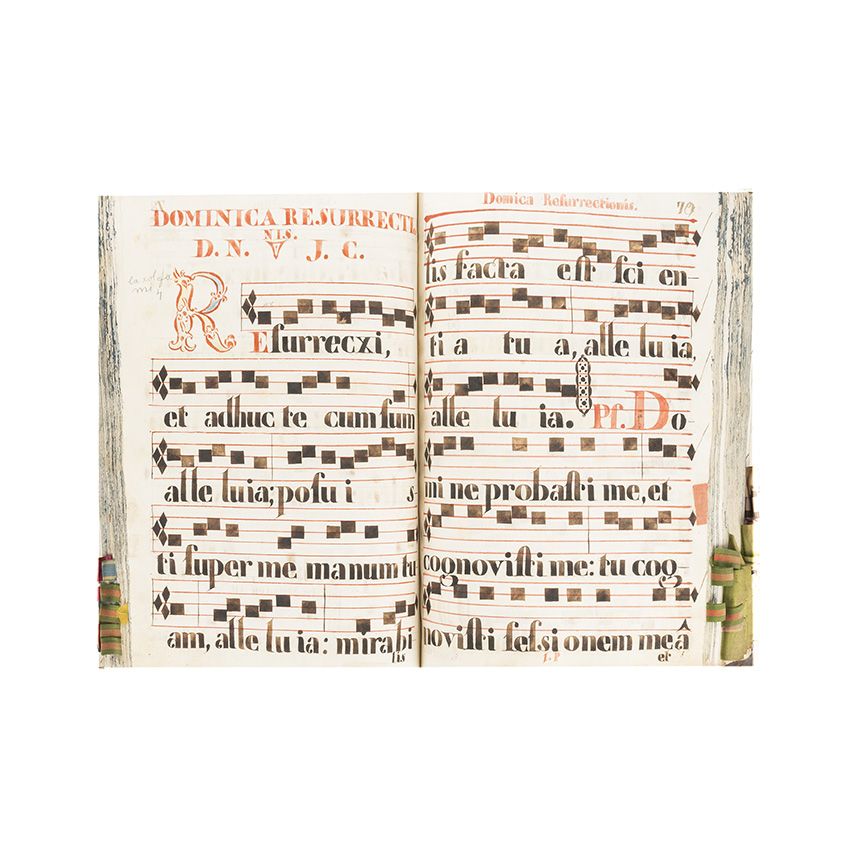 DOMINICA RESURRECTI
NIS.
D. N. J. C.
REſurrecxi,
et adhuc te cum ſum
alle luia; poſu i s-
ti ſuper me manum tu
am, alle lu ia: mirabi
lis
Domica Reſurrectionis.
lis facta eſt ſci en
ti a tu a, alle lu ia,
alle lu ia. Pſ. Do-
mi ne probaſti me, et
cognoviſti me: tu cog
noviſti ſeſsi onem meâ
et